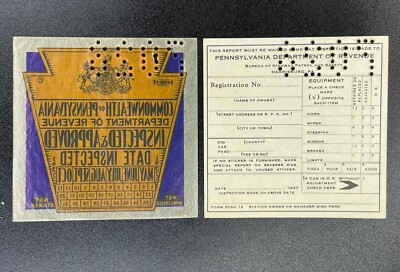 COMMONWEALTH OF PENNSYLVANIA
DEPARTMENT OF REVENUE
INSPECTED & APPROVED
DATE INSPECTED
MAY JUNE JULY AUG SEPT OCT
THIS REPORT MUST BE MADE
IS MADE TO
PENNSYLVANIA DEPARTMENT OF REVENUE
BUREAU OF
PATROL AND SAFETY
Registration No.
(NAME OF OWNER)
(STREET ADDRESS OR R. F. D. NO.)
(CITY OR TOWN)
(COUNTY)
DID
CAR
PASS?
(YES OR NO)
IF NO STICKER IS FURNISHED, MAKE
SPECIAL REPORT ON REVERSE
SIDE AND ATTACH TO UNUSED STICKER.
DATE 1937
INSPECTION MADE ON ABOVE DATE
EQUIPMENT
PLACE A CHECK
MARK
(√) OPPOSITE
EACH ITEM
REPAIRED OR
REPLACED
ADJUSTED
O. K.
HORN
WIPER
STEERING
MIRROR
BRAKES
LIGHTS
FIXED POOR FAIR GOOD
IF CAR IS O. K. WITHOUT
ADJUSTMENT
CHECK HERE
STATION OWNER OR MANAGER SIGN HERE